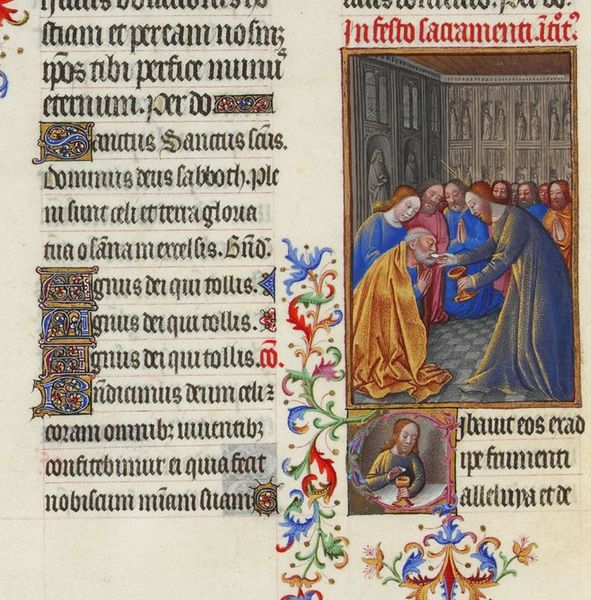 stiam et percam nosmꝫ
ipos tibi perfice munꝰ
eternum. Per do
Sanctus Sanctus scūs.
dominus deus sabboth. Ple
ni sunt celi et terra gloria
tua osāna in excelsis. Bnd̄.
Agnus dei qui tollis.
Agnus dei qui tollis.
Agnus dei qui tollis. cō
Bndicimus deum celi ⁊
coram omnibꝫ viventibꝫ
confitebimur ei quia fecit
nobiscum mīam suam
In festo sacramenti
Cibavit eos ex ad
ipe frumenti
alleluya et de